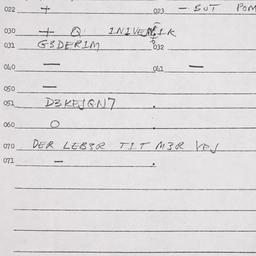 022 + 023 - BUT POM
030 + Q INIVE
031 GSDERIM 032
040 — 041 —
050 —
051 D3KEJGN7 .
060 O
070 DER LEB3R TIT M3R VEJ
071 — .